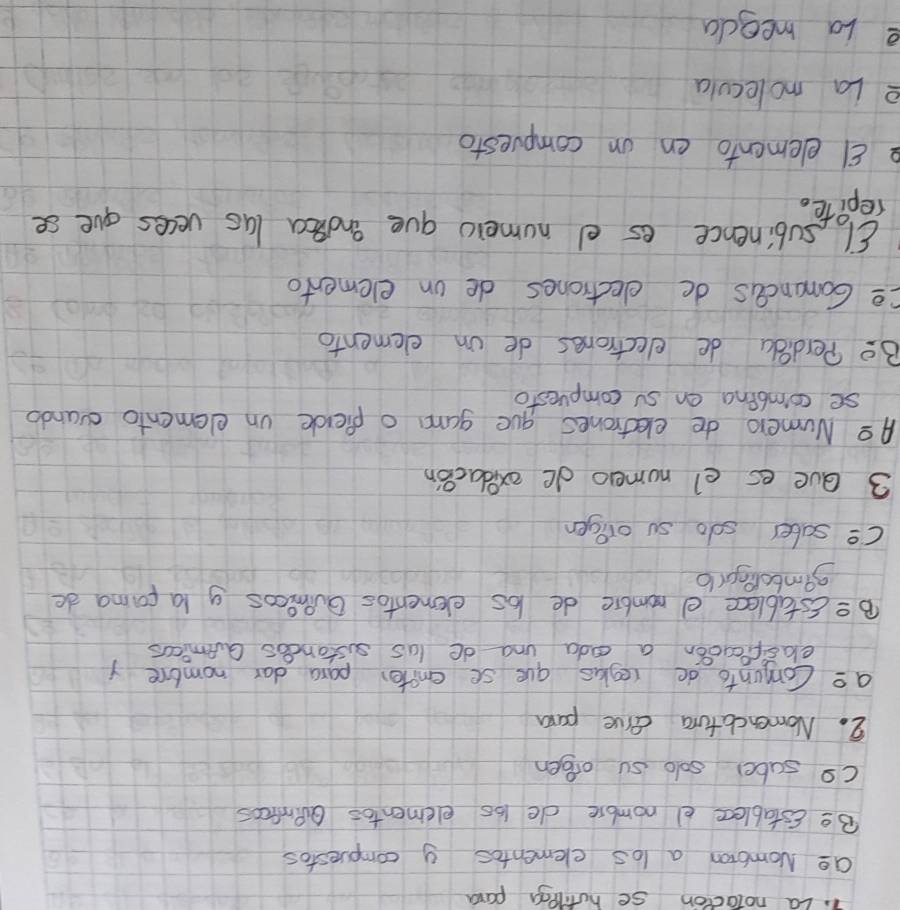 1. La notación se hutiliga para
a= Nombran a los elementos y compuestos
B= Establece el nombre de los elementos Químicos
C= saber solo su origen
2. Nomenclatura cirve para
a= Conjunto de reglas que se para dar nombre y
a cada una de las sustancias Químicas
B= Establece el nombre de los elementos Químicos y la forma de
simboligarlo
C= saber solo su origen
3 Que es el numero de oxidación
A= Numero de electrones que gana o pierde un elemento cuando
se combina en su compuesto
B= Perdida de electrones de un elemento
C= Ganancias de electrones de un elemento
El subinence es el numero que indica las veces que se
repite.
El elemento en un compuesto
La molecula
La megda